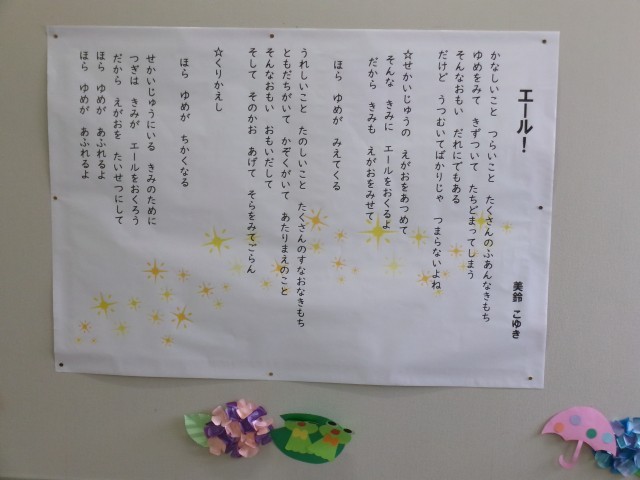 エール！
美鈴 こゆき
かなしいこと つらいこと たくさんのふあんなきもち
ゆめをみて きずついて たちどまってしまう
そんなおもい だれにでもある
だけど うつむいてばかりじゃ つまらないよね
☆せかいじゅうの えがおをあつめて
そんな きみに エールをおくるよ
だから きみも えがおをみせて
ほら ゆめが みえてくる
うれしいこと たのしいこと たくさんのすなおなきもち
ともだちがいて かぞくがいて あたりまえのこと
そんなおもい おもいだして
そして そのかお あげて そらをみてごらん
☆くりかえし
ほら ゆめが ちかくなる
せかいじゅうにいる きみのために
つぎは きみが エールをおくろう
だから えがおを たいせつにして
ほら ゆめが あふれるよ
ほら ゆめが あふれるよ